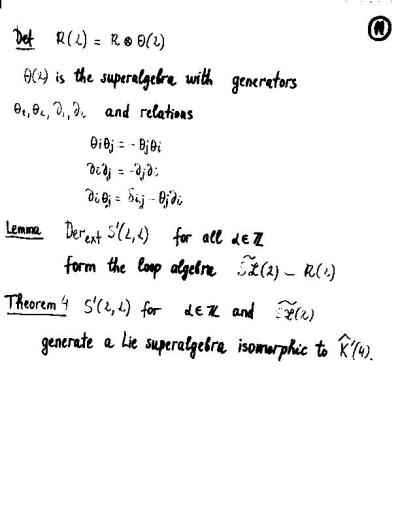 (N)
Def R(2) = R ⊗ Θ(2)
Θ(2) is the superalgebra with generators
θ₁, θ₂, ∂₁, ∂₂ and relations
θiθj = -θjθi
∂i∂j = -∂j∂i
∂iθj = δi,j - θj∂i
Lemma Der_ext S'(2,α) for all α∈ℤ
form the loop algebra
Theorem 4 S'(2,α) for α∈ℤ and
generate a Lie superalgebra isomorphic to K̂'(4).